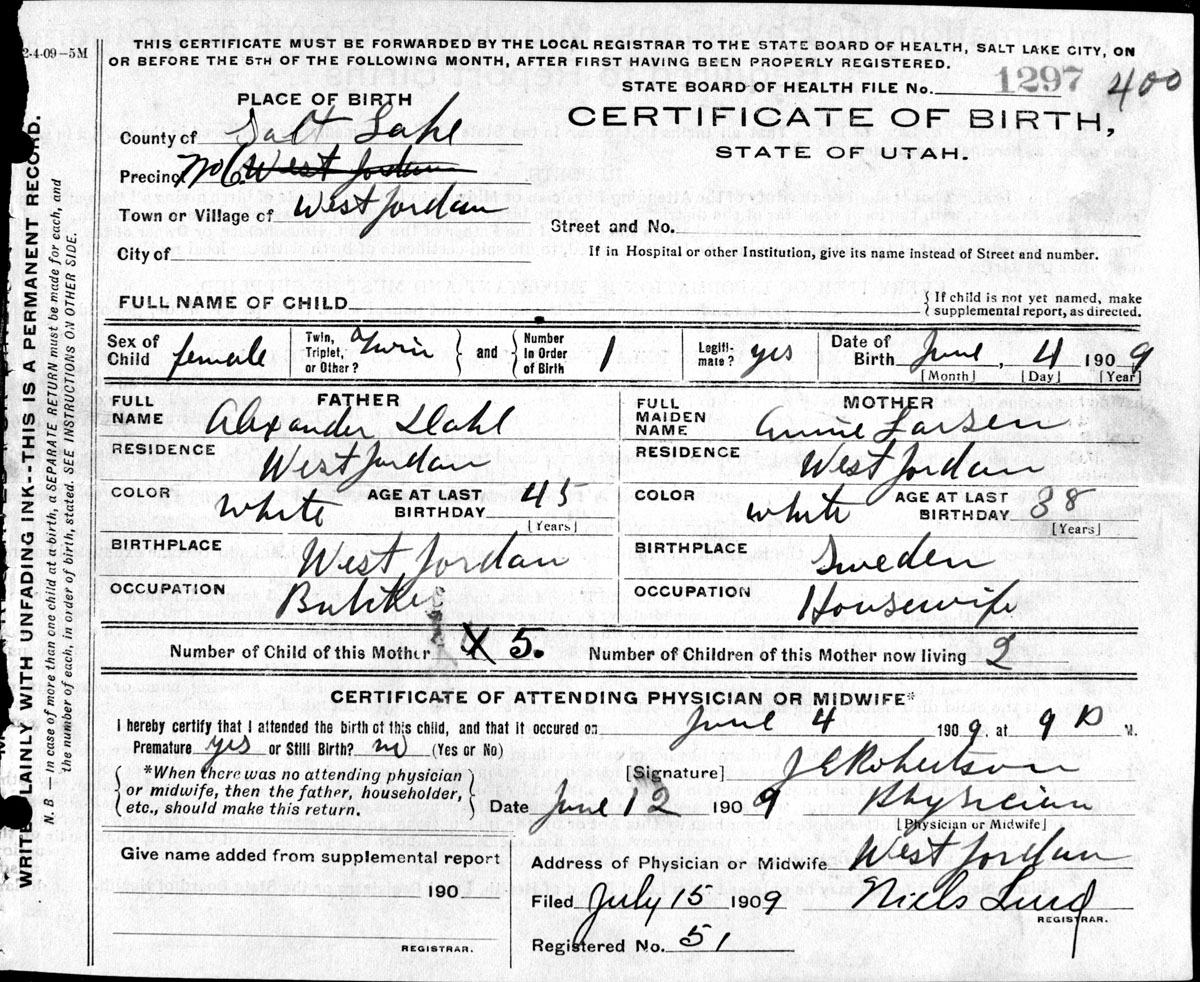 2-4-09-5M
THIS CERTIFICATE MUST BE FORWARDED BY THE LOCAL REGISTRAR TO THE STATE BOARD OF HEALTH, SALT LAKE CITY, ON
OR BEFORE THE 5TH OF THE FOLLOWING MONTH, AFTER FIRST HAVING BEEN PROPERLY REGISTERED.
STATE BOARD OF HEALTH FILE No. 1297 400
PLACE OF BIRTH
CERTIFICATE OF BIRTH,
STATE OF UTAH.
County of Salt Lake
Precinct No 6. West Jordan
Town or Village of West Jordan
Street and No.
City of
If in Hospital or other Institution, give its name instead of Street and number.
FULL NAME OF CHILD
{ If child is not yet named, make
supplemental report, as directed.
Sex of Child female Twin, Triplet, or Other? Twin } and { Number in Order of Birth 1 Legiti-mate? yes Date of Birth June, 4 1909
[Month] [Day] [Year]
FATHER
FULL NAME Alexander Dahl
RESIDENCE West Jordan
COLOR White AGE AT LAST BIRTHDAY 45
[Years]
BIRTHPLACE West Jordan
OCCUPATION
MOTHER
FULL MAIDEN NAME Annie Larsen
RESIDENCE West Jordan
COLOR White AGE AT LAST BIRTHDAY 38
[Years]
BIRTHPLACE Sweden
OCCUPATION Housewife
Number of Child of this Mother X 5. Number of Children of this Mother now living 2
CERTIFICATE OF ATTENDING PHYSICIAN OR MIDWIFE*
I hereby certify that I attended the birth of this child, and that it occured on June 4 1909. at 9 M.
Premature yes or Still Birth? no (Yes or No)
{ *When there was no attending physician
or midwife, then the father, householder,
etc., should make this return. }
[Signature] J E Robertson
Date June 12 1909 Physician
[Physician or Midwife]
Give name added from supplemental report
190
REGISTRAR.
Address of Physician or Midwife West Jordan
Filed July 15 1909 Niels Lind
REGISTRAR.
Registered No. 51
WRITE PLAINLY WITH UNFADING INK--THIS IS A PERMANENT RECORD.
N. B. — In case of more than one child at a birth, a SEPARATE RETURN must be made for each, and
the number of each, in order of birth, stated. SEE INSTRUCTIONS ON OTHER SIDE.